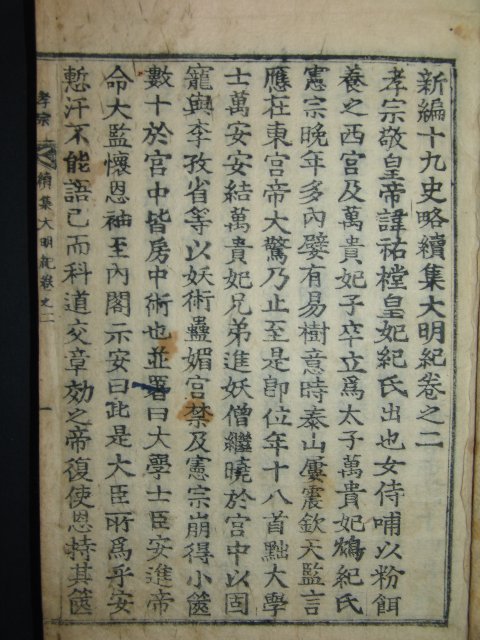 新編十九史略續集大明紀卷之二
孝宗敬皇帝諱祐樘皇妃紀氏出也女侍哺以粉餌
養之西宮及萬貴妃子卒立爲太子萬貴妃鴆紀氏
憲宗晚年多內嬖有易樹意時泰山屢震欽天監言
應在東宮帝大驚乃止至是卽位年十八首黜大學
士萬安安結萬貴妃兄弟進妖僧繼曉於宮中以固
寵與李孜省等以妖術蠱媚宮禁及憲宗崩得小篋
數十於宮中皆房中術也並署曰大學士臣安進帝
命大監懷恩袖至內閣示安曰此是大臣所爲乎安
慙汗不能語已而科道交章劾之帝復使恩持其篋
孝宗 續集大明紀卷之二 一